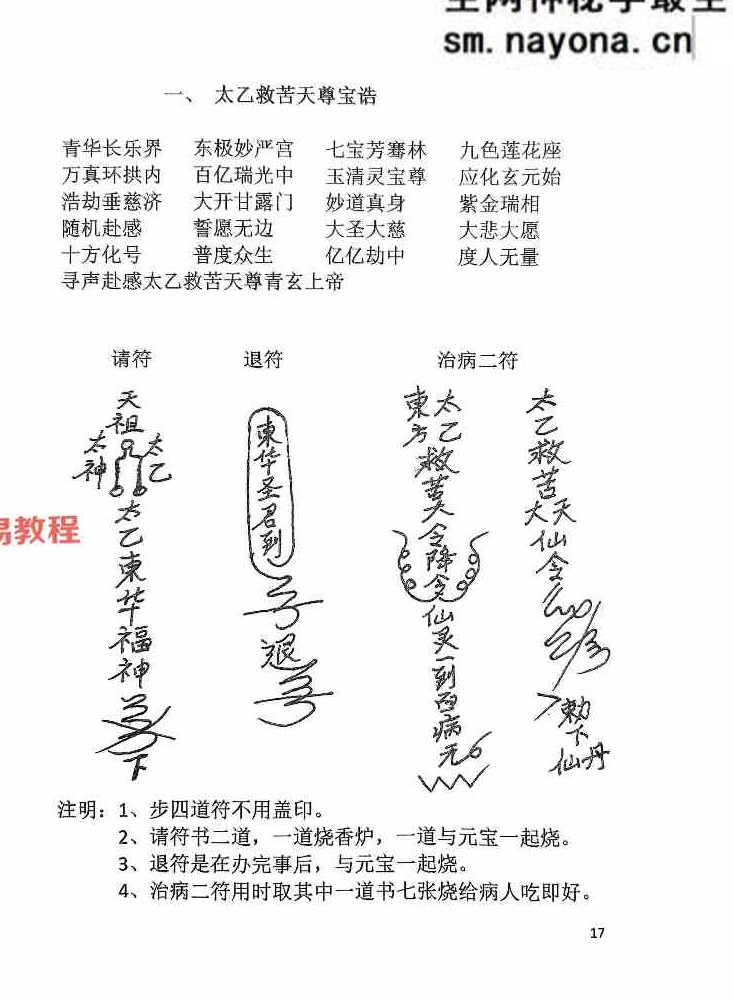 sm.nayona.cn
一、 太乙救苦天尊宝诰
青华长乐界 东极妙严宫 七宝芳骞林 九色莲花座
万真环拱内 百亿瑞光中 玉清灵宝尊 应化玄元始
浩劫垂慈济 大开甘露门 妙道真身 紫金瑞相
随机赴感 誓愿无边 大圣大慈 大悲大愿
十方化号 普度众生 亿亿劫中 度人无量
寻声赴感太乙救苦天尊青玄上帝
请符 退符 治病二符
天祖
太神
太乙
太乙東华福神
下
東华圣君到
退
東方
太乙救苦
令降令
仙灵一到百病无
太乙救苦
大天
仙令
敕下
仙丹
易教程
注明：1、步四道符不用盖印。
2、请符书二道，一道烧香炉，一道与元宝一起烧。
3、退符是在办完事后，与元宝一起烧。
4、治病二符用时取其中一道书七张烧给病人吃即好。
17